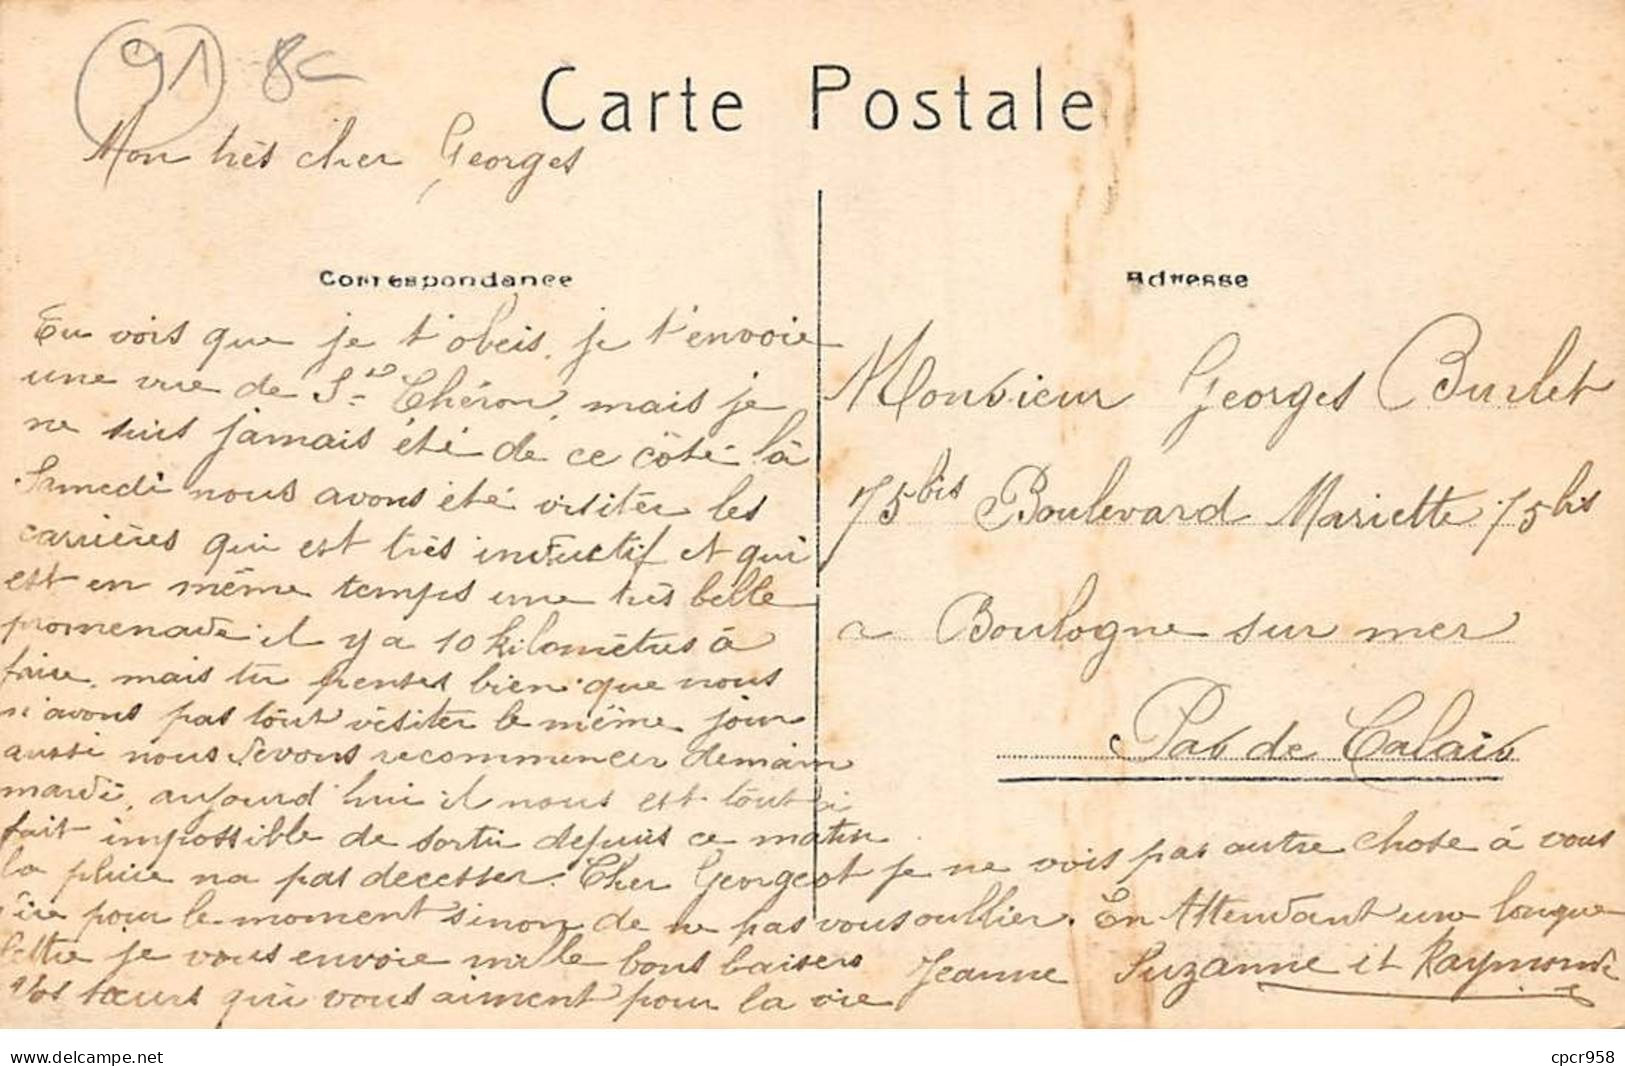 91 8c
Carte Postale
Mon très cher Georges
Correspondance
Tu vois que je t'obeis, je t'envoie
une vue de St Chéron, mais je
ne suis jamais été de ce côté là
Samedi nous avons été visiter les
carrières qui est très instructif et qui
est en même temps une très belle
promenade il y a 10 kilomètres à
faire, mais tu penses bien que nous
n'avons pas tout visiter le même jour
aussi nous devons recommencer demain
mardi, aujourd'hui il nous est tout à
fait impossible de sortir depuis ce matin
la pluie na pas decesser. Cher Georgeot je ne vois pas autre chose à vous
dire pour le moment sinon de ne pas vous oullier. En Attendant une longue
lettre je vous envoie mille bons baisers Jeanne Suzanne et Raymonde
Vos sœurs qui vous aiment pour la vie
Adresse
Monsieur Georges Burlet
75 bis Boulevard Mariette 75 bis
a Boulogne sur mer
Pas de Calais
delcampe.net
cpcr958